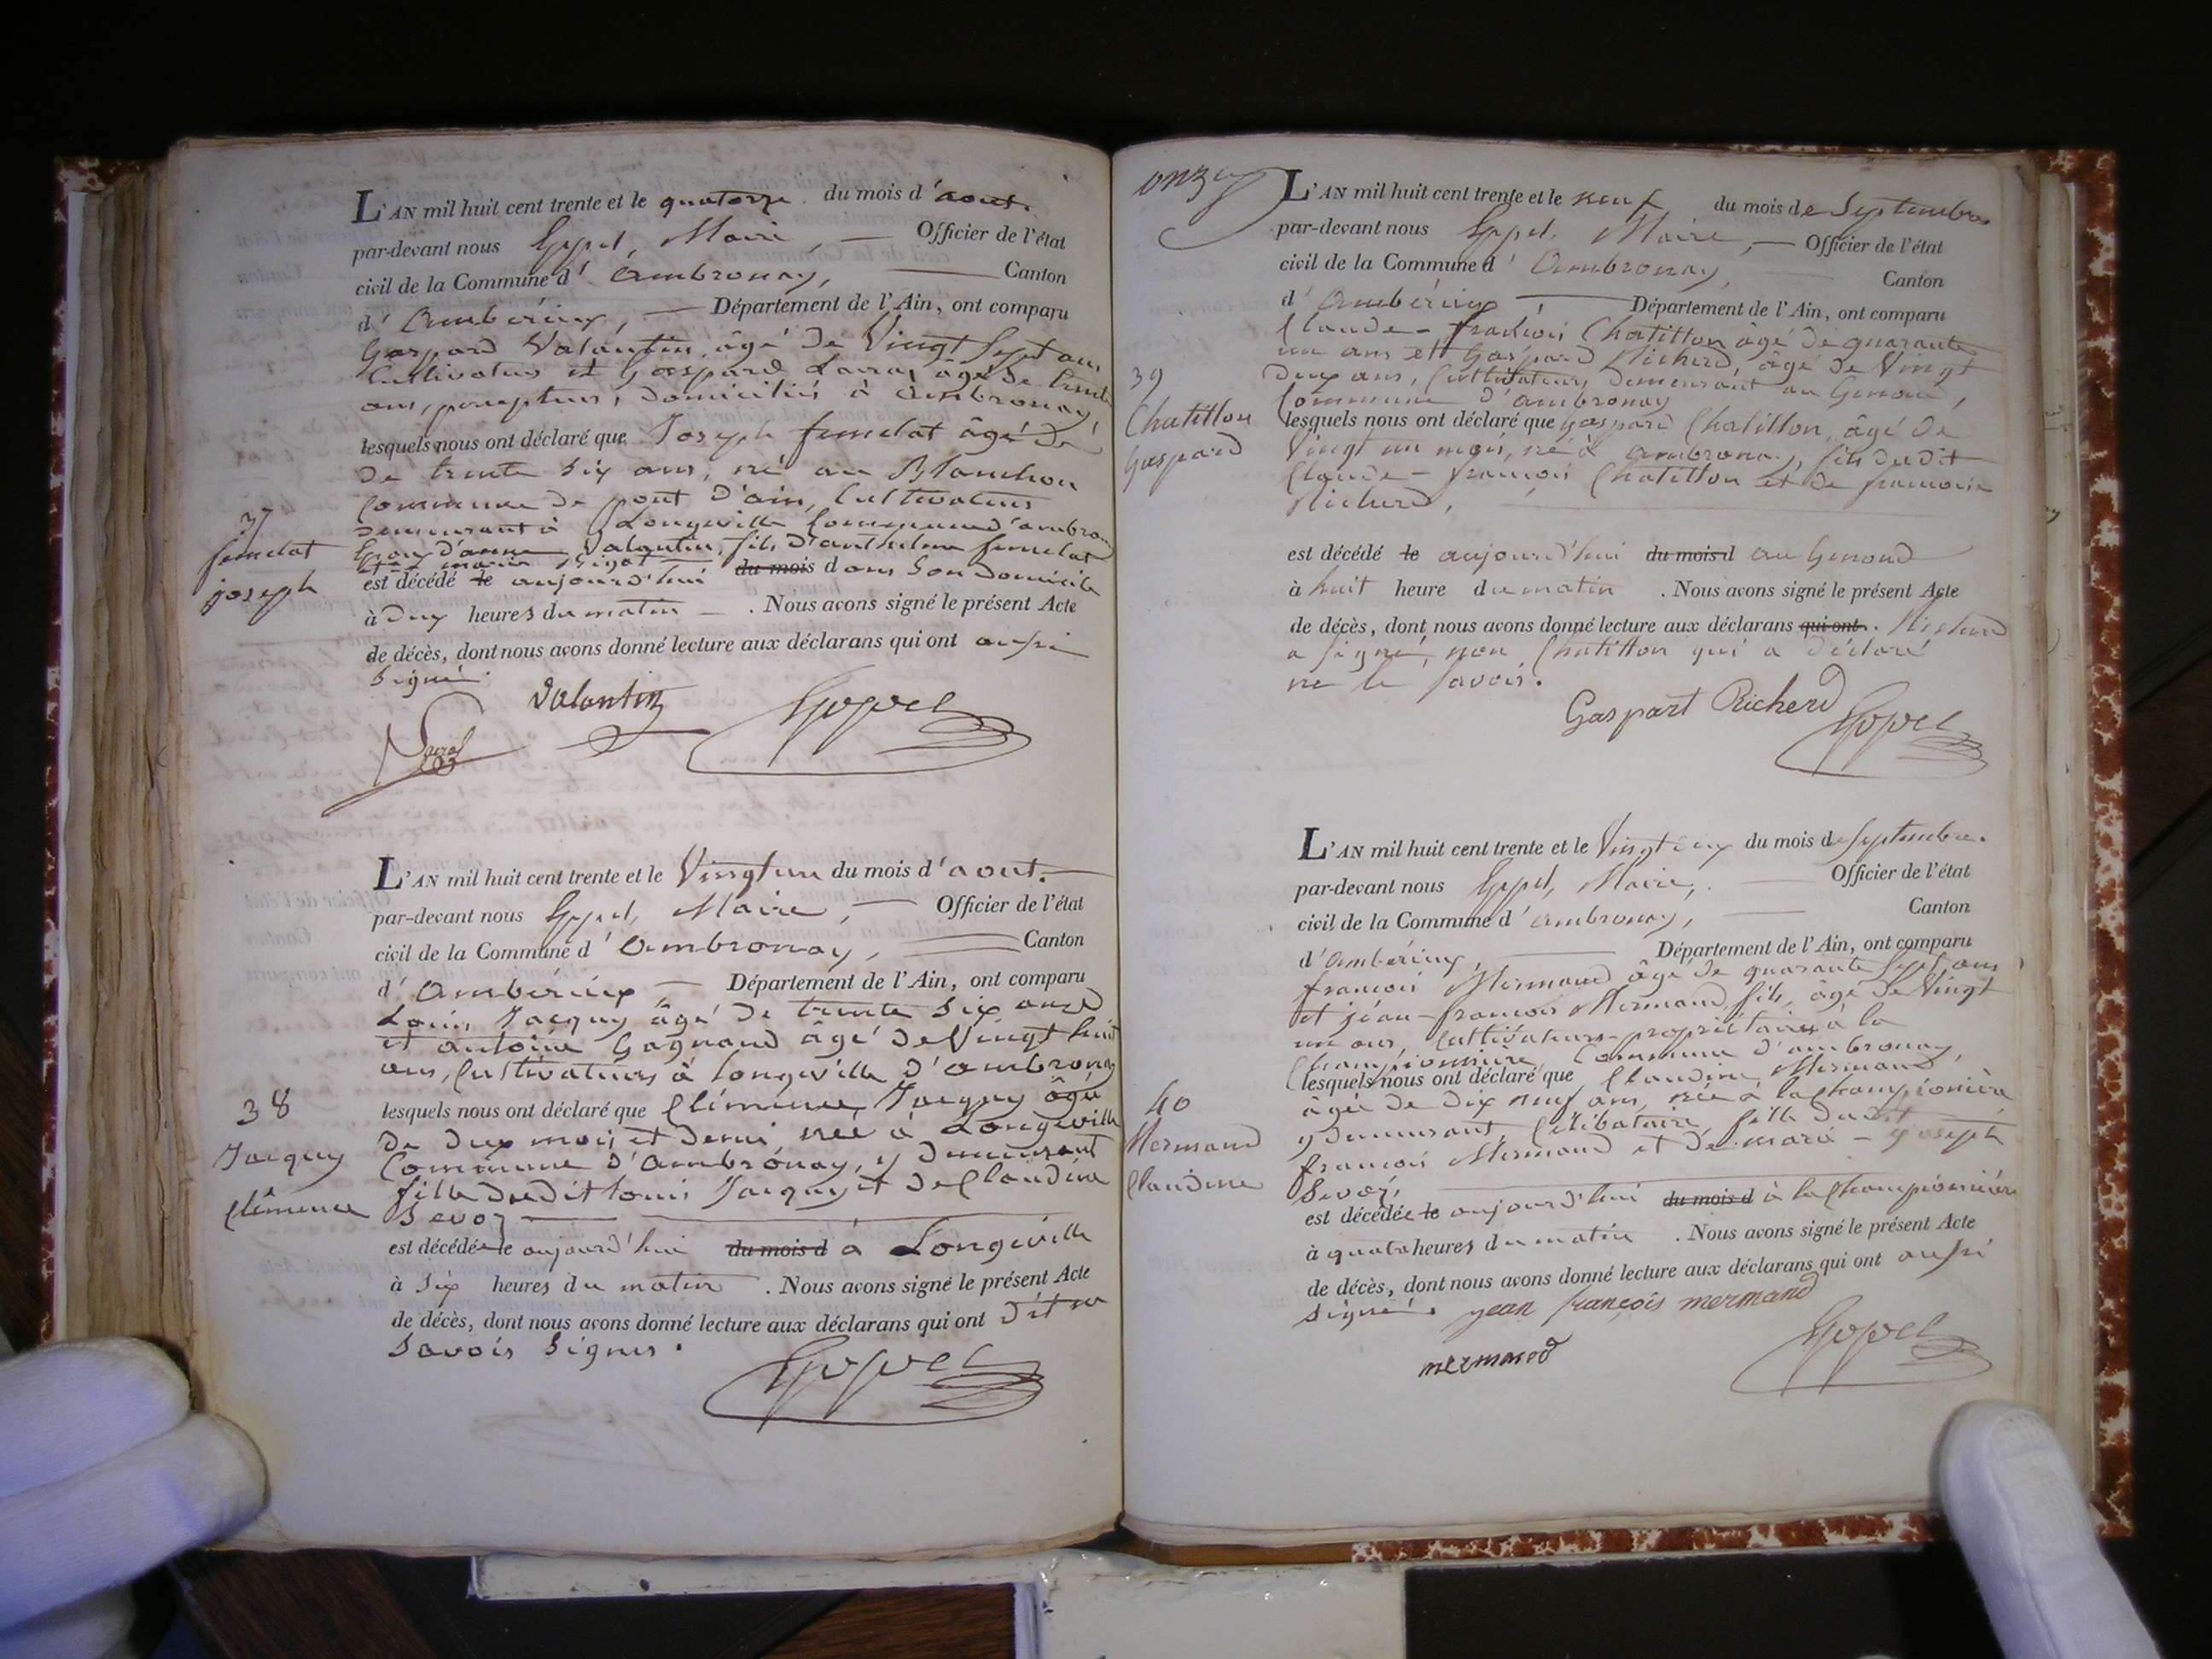 L'AN mil huit cent trente et le quatorze du mois d'aout.
par-devant nous Goppel, Maire, Officier de l'état
civil de la Commune d'ambronay, Canton
d'Ambérieux, Département de l'Ain, ont comparu
Gaspard Valantin, âgé de Vingt Sept ans,
Cultivateur et Gaspard Lairal âgé de trente
ans, percepteur, domiciliés à ambronay
lesquels nous ont déclaré que Joseph femelat âgé de
de trente Six ans, né au Blanchon
Commune de pont d'ain, Cultivateur
demeurant à Longeville Commune d'ambronay
37
femelat
joseph
Epoux d'anne Valantin, fils d'anthelme femelat
et de marie
est décédé le aujourd'hui du mois dans Son domicile
à deux heures du matin. Nous avons signé le présent Acte
de décès, dont nous avons donné lecture aux déclarans qui ont aussi
Signé.
Valantin
Goppel
L'AN mil huit cent trente et le Vingt un du mois d'aout.
par-devant nous Goppel, Maire, Officier de l'état
civil de la Commune d'ambronay, Canton
d'Ambérieux, Département de l'Ain, ont comparu
Louis Jacquy âgé de trente Six ans
et antoine Gagnand âgé de Vingt huit
ans, Cultivateurs à longeville d'ambronay
38
Jacquy
Clémence
lesquels nous ont déclaré que Clémence Jacquy âgée
de deux mois et demi, née à Longeville
Commune d'Ambrônay, y demeurant
fille dudit Louis Jacquy et de Claudine
Sevoz
est décédée le aujourd'hui du mois d à Longeville
à Six heures du matin. Nous avons signé le présent Acte
de décès, dont nous avons donné lecture aux déclarans qui ont dit ne
Savoir Signer.
Goppel
onze
L'AN mil huit cent trente et le neuf du mois de Septembre
par-devant nous Goppel, Maire, Officier de l'état
civil de la Commune d'Ambronay, Canton
d'Ambérieux, Département de l'Ain, ont comparu
Claude-françois Chatillon âgé de quarante
un ans et Gaspard Richerd, âgé de Vingt
deux ans, Cultivateurs, demeurant au Genoud,
Commune d'ambronay
39
Chatillon
Gaspard
lesquels nous ont déclaré que Gaspard Chatillon, âgé de
Vingt un mois, né à Ambronay, fils dudit
Claude-françois Chatillon et de françoise
Richerd,
est décédé le aujourd'hui du mois d au Genoud
à huit heure du matin. Nous avons signé le présent Acte
de décès, dont nous avons donné lecture aux déclarans qui ont. Richerd
a signé, non Chatillon qui a déclaré
ne le savoir.
Gaspart Richerd
Goppel
L'AN mil huit cent trente et le Vingt deux du mois de Septembre.
par-devant nous Goppel, Maire, Officier de l'état
civil de la Commune d'ambronay, Canton
d'ambérieux, Département de l'Ain, ont comparu
françois Mermand âgé de quarante Sept ans
et jean-françois Mermand fils, âgé de Vingt
un ans, Cultivateurs-propriétaires à la
Championnière, Commune d'ambronay,
40
Mermand
Claudine
lesquels nous ont déclaré que Claudine Mermand
âgée de dix neuf ans, née à la championière
y demeurant, Célibataire, fille dudit
françois Mermand et de marie-joseph
Sevoz,
est décédée le aujourd'hui du mois d à la Championière
à quatre heures du matin. Nous avons signé le présent Acte
de décès, dont nous avons donné lecture aux déclarans qui ont aussi
signé. jean françois mermand
mermand
Goppel